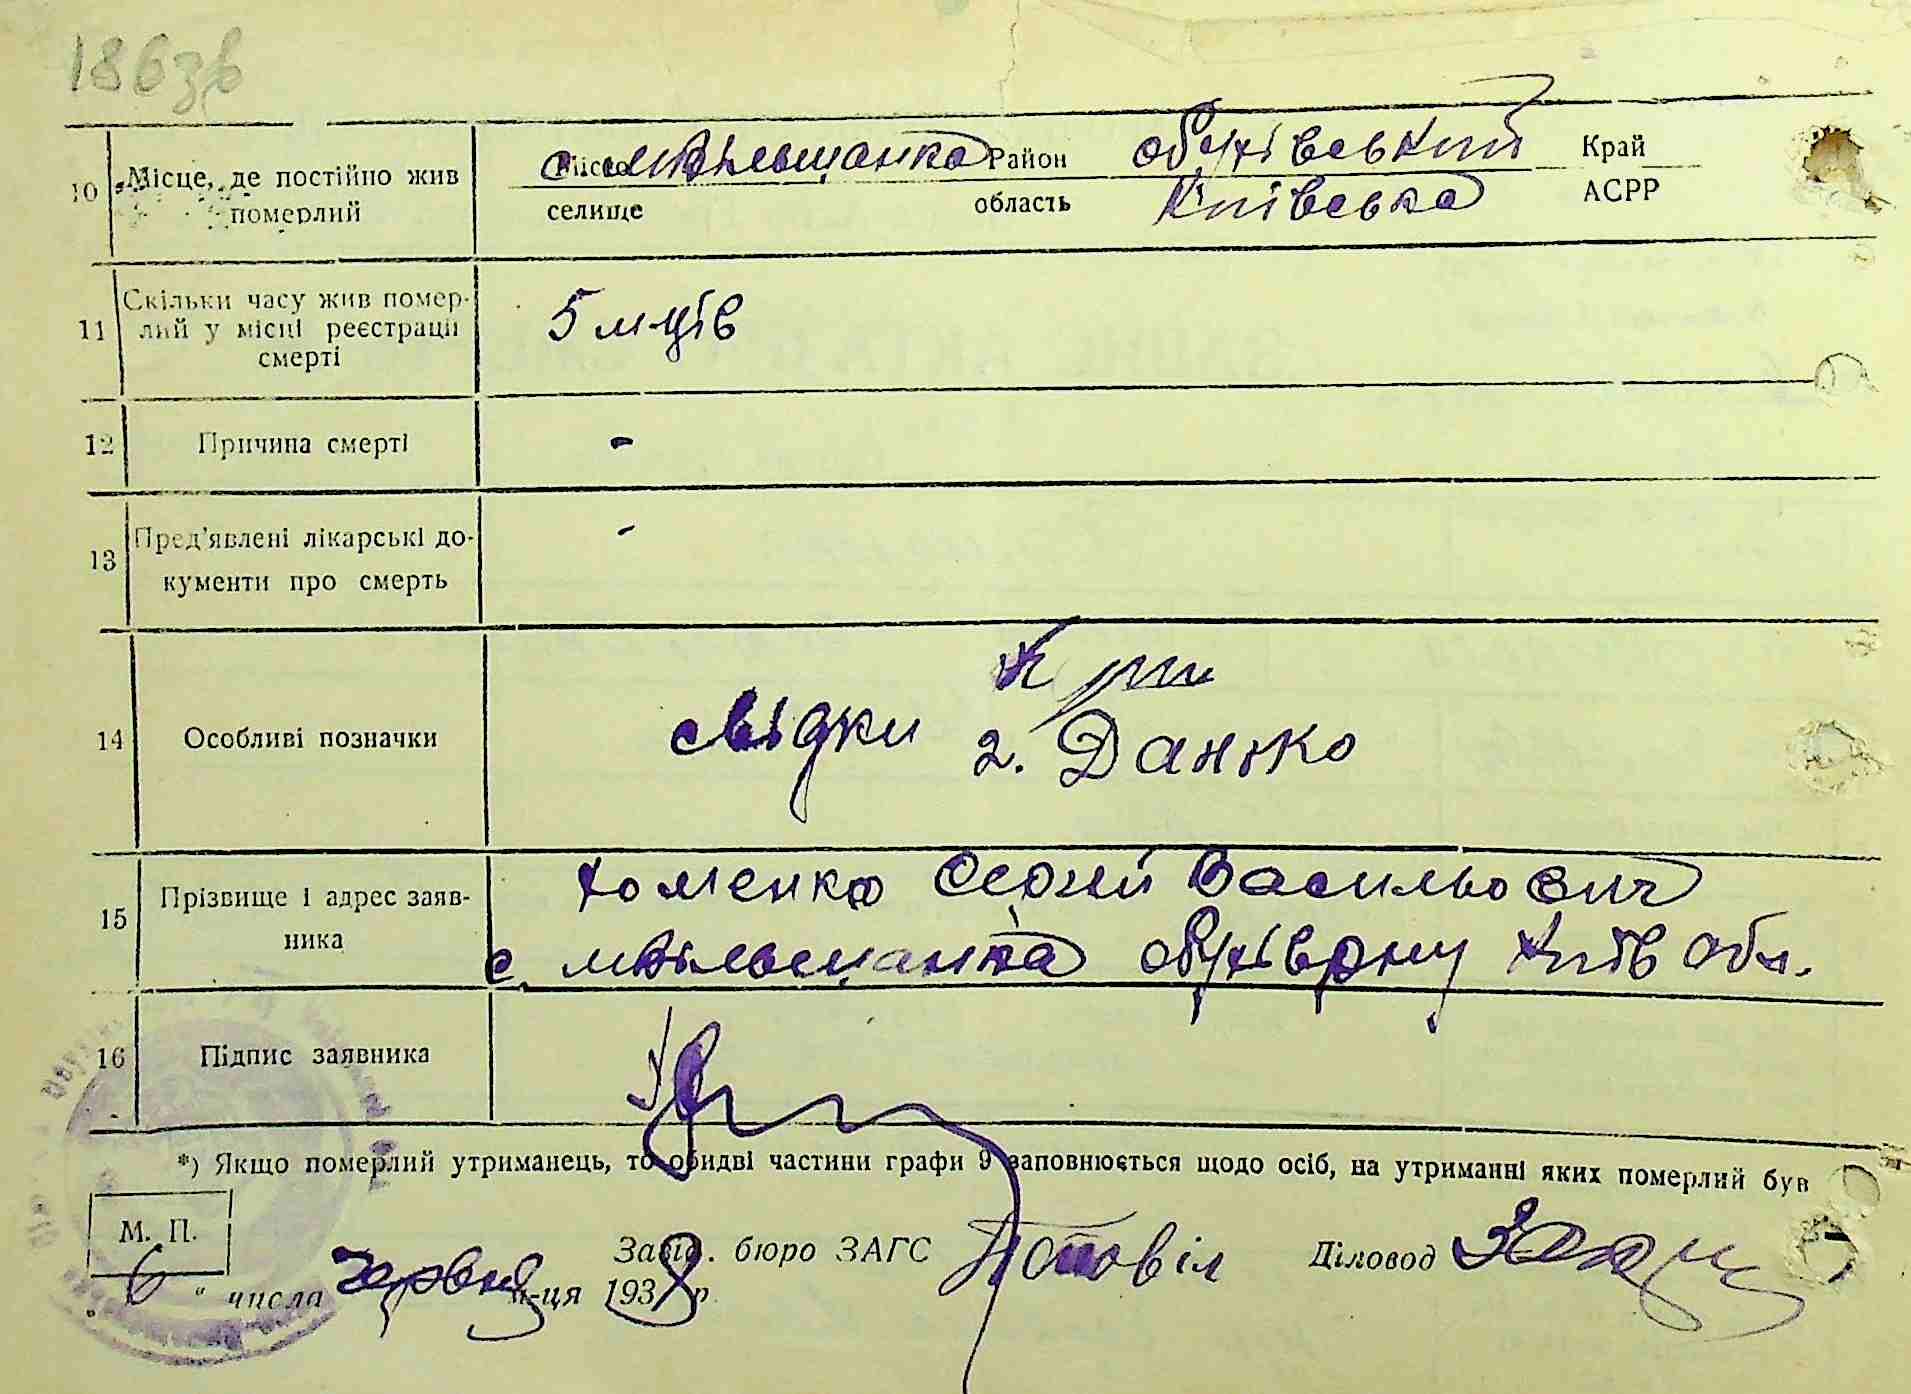 186зв
10 Місце, де постійно жив померлий
с. Мкільщанка Район обухівський Край
селище область Київська АСРР
11 Скільки часу жив помер-
лий у місці реєстрації
смерті
5 м-ців
12 Причина смерті -
13 Пред'явлені лікарські до-
кументи про смерть
-
14 Особливі позначки
свідки
2. Данько
15 Прізвище і адрес заяв-
ника
Хоменко Сергій Васильович
с. обухів рну Київ обл.
16 Підпис заявника
*) Якщо померлий утриманець, то обидві частини графи 9 заповнюється щодо осіб, на утриманні яких померлий був
М. П.
Завід. бюро ЗАГС Діловод
„ 6 " числа червня м-ця 1938 р.